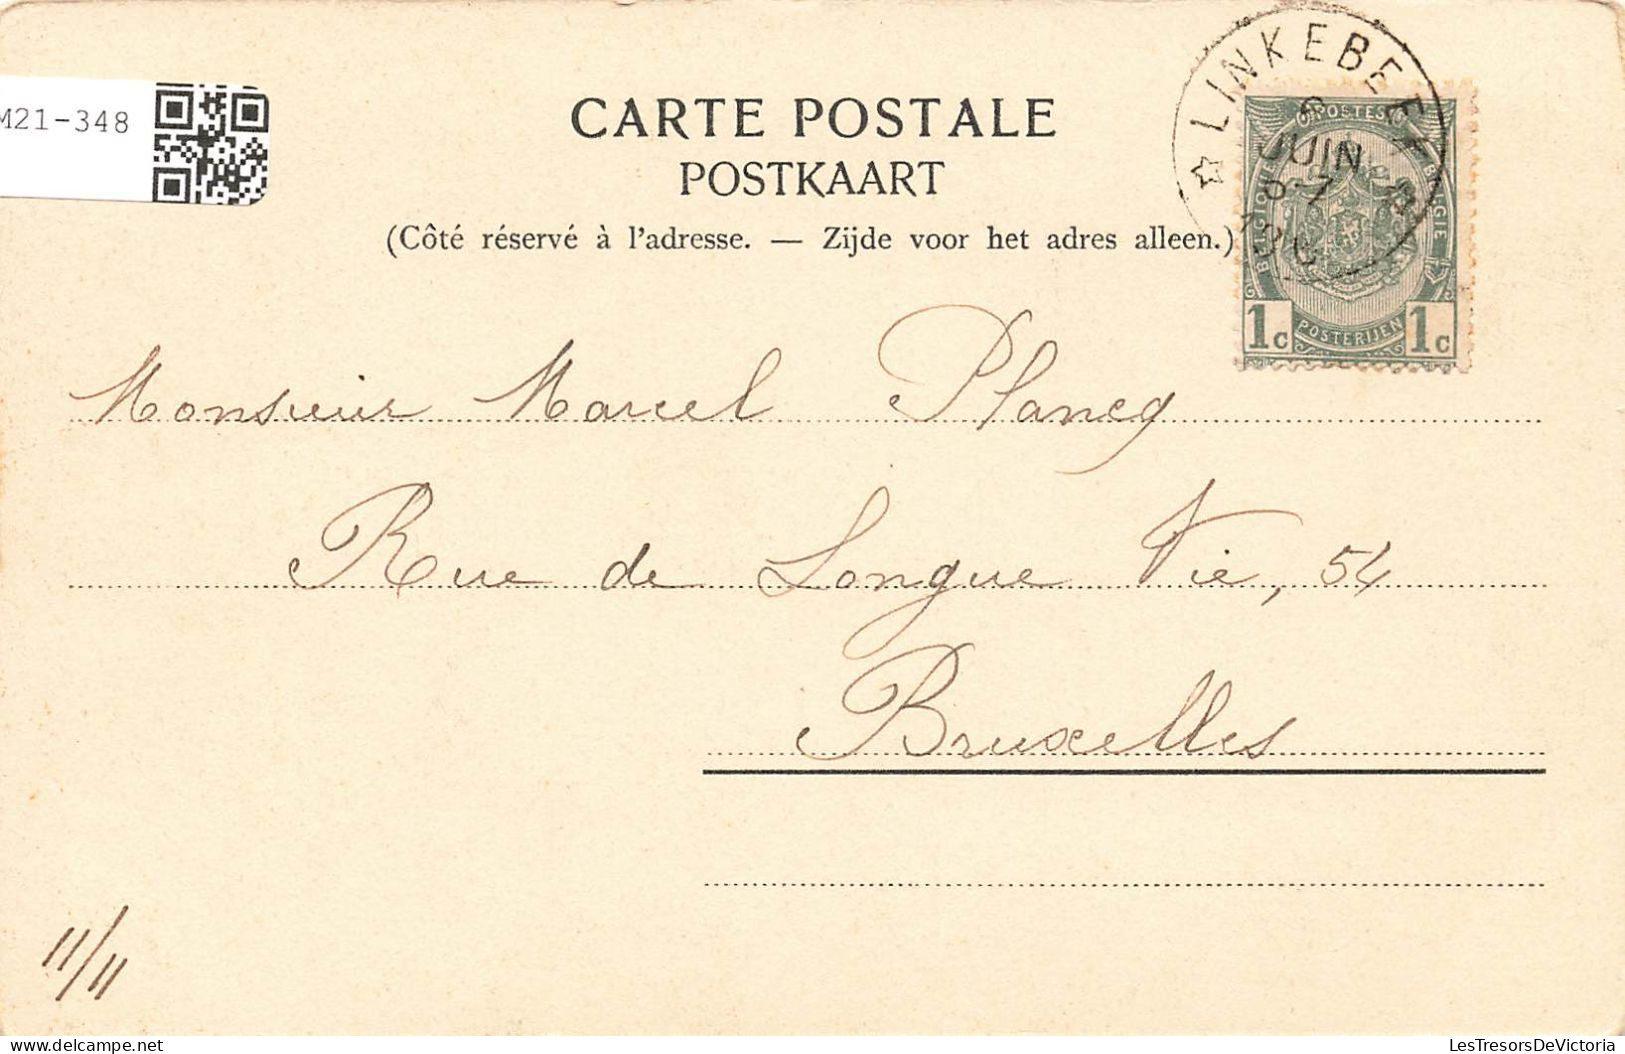 M21-348
CARTE POSTALE
POSTKAART
(Côté réservé à l'adresse. — Zijde voor het adres alleen.)
LINKEBEEK
6
JUIN
8-7
POSTES
BELGIQUE
BELGIE
1c POSTERIJEN 1c
Monsieur Marcel Plancq
Rue de Longue Vie, 54
Bruxelles
11/11
LesTresorsDeVictoria